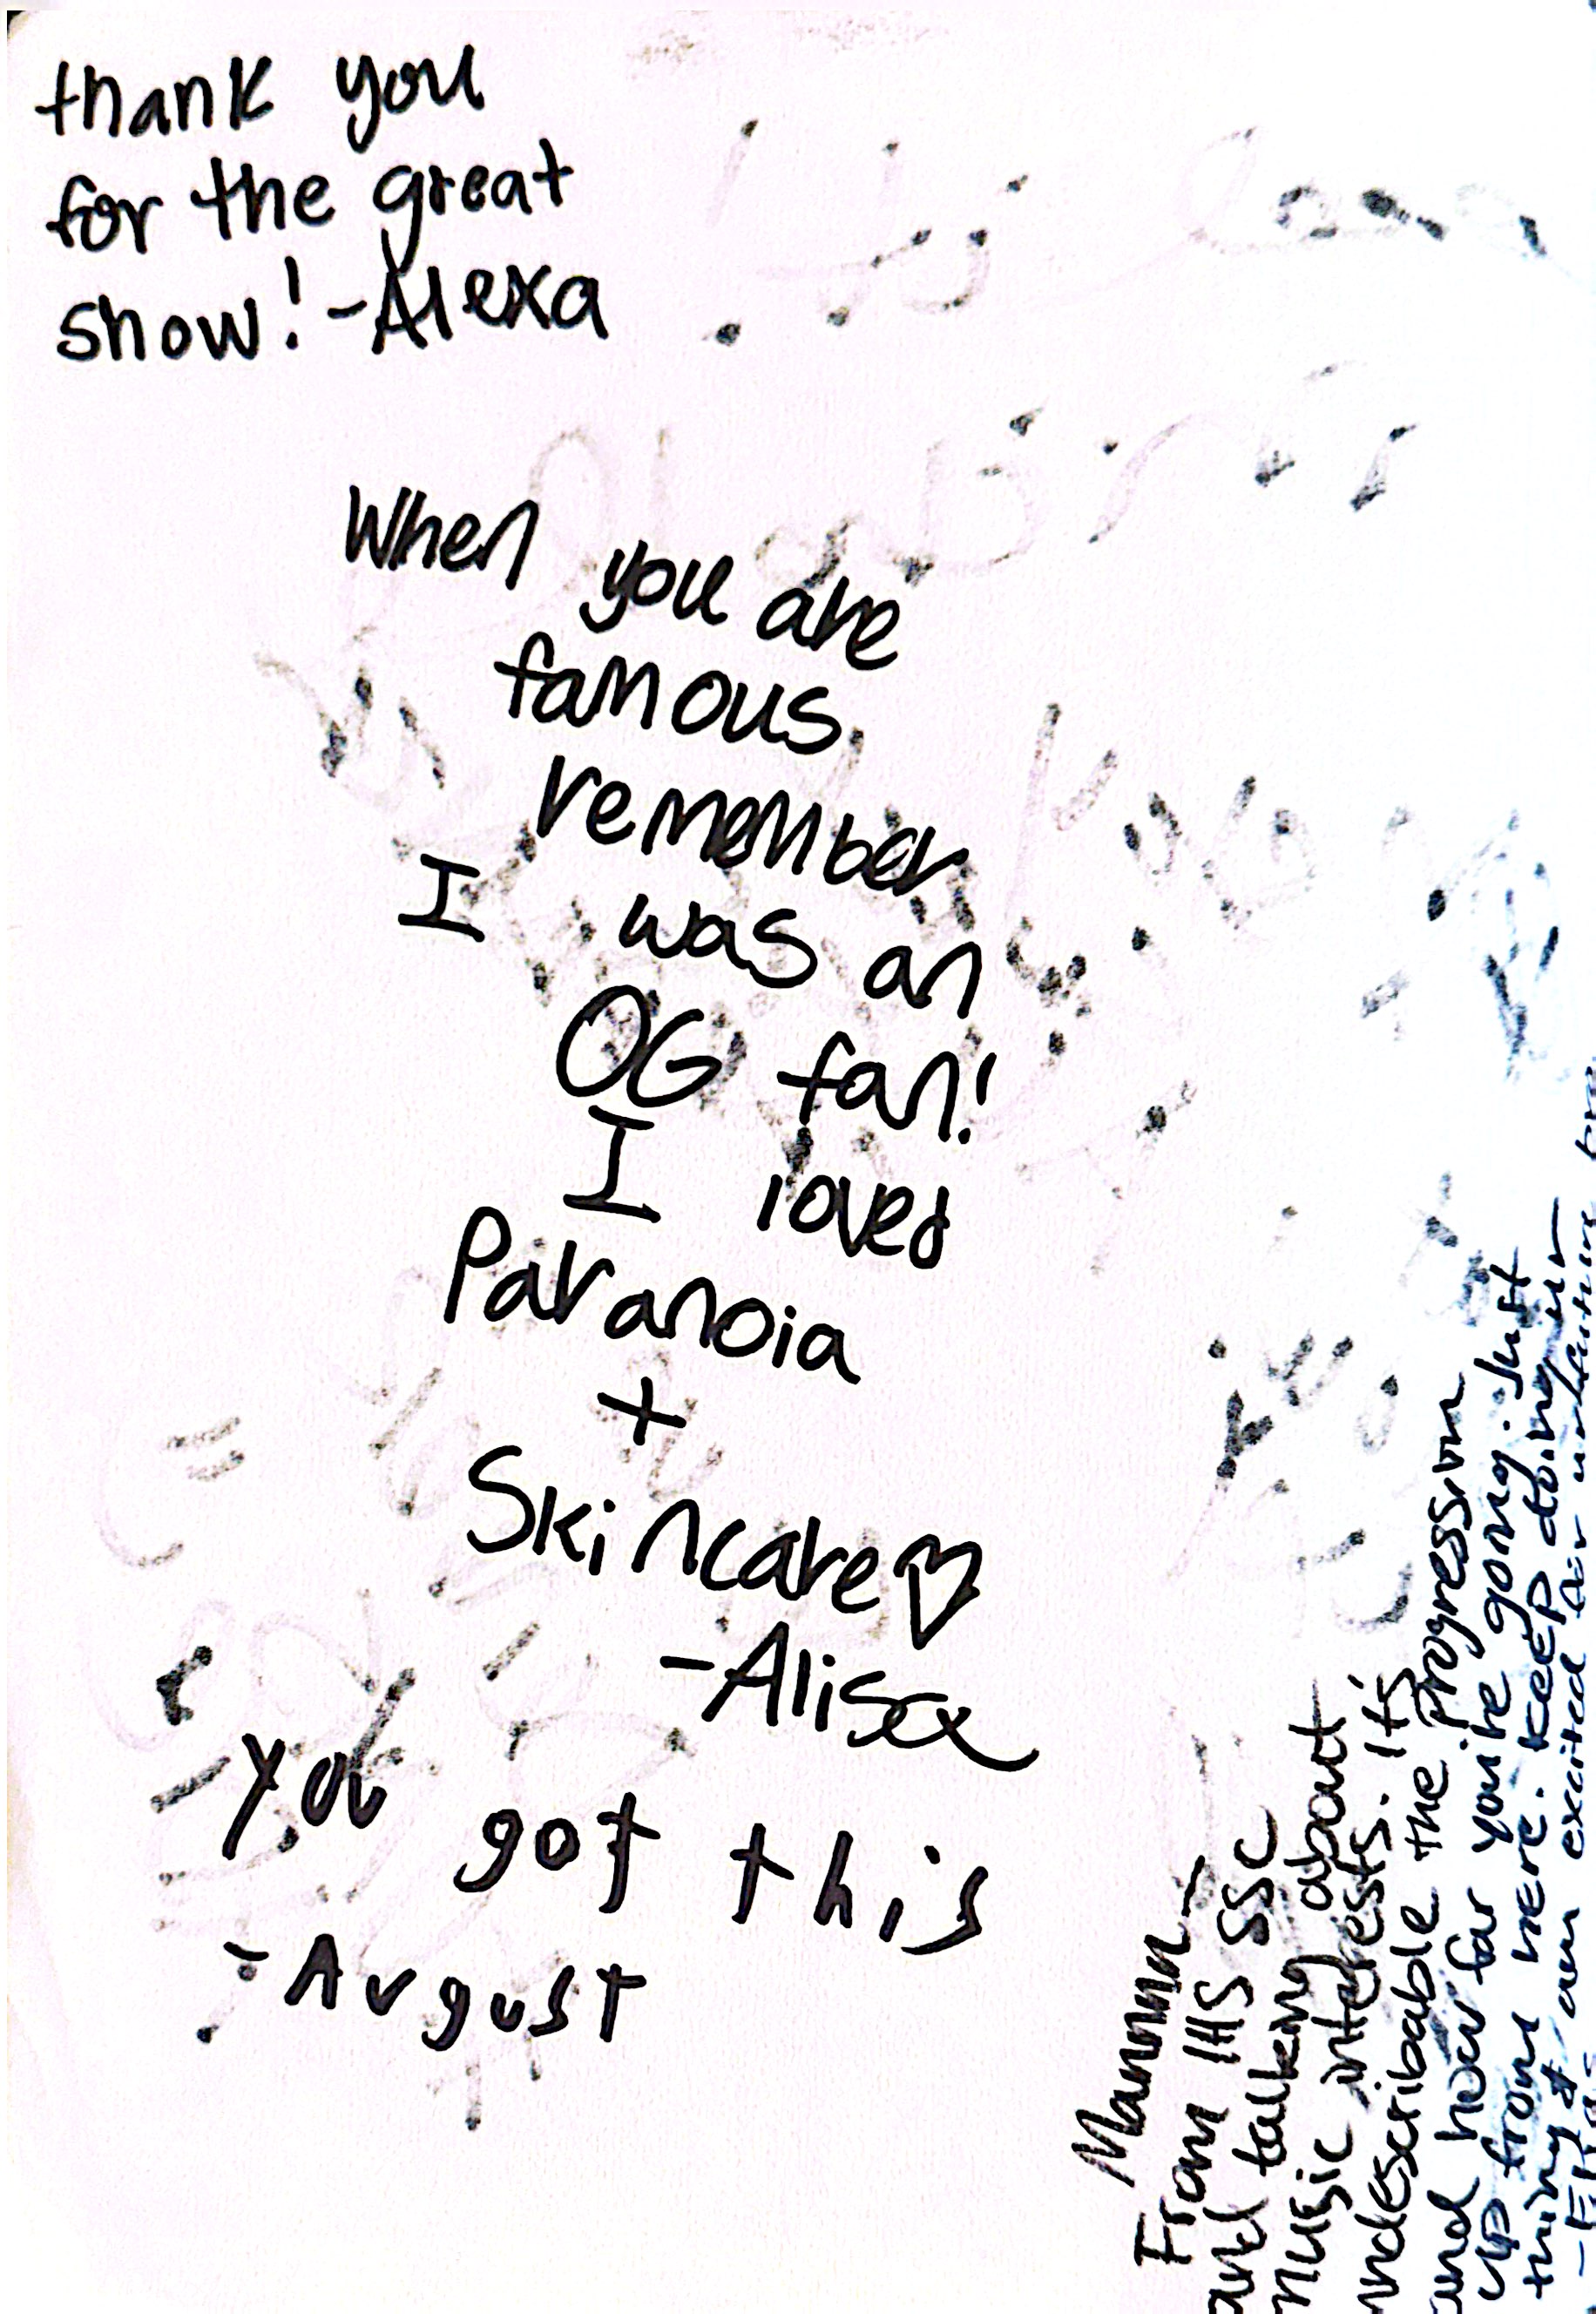 thank you
for the great
show! -Alexa
When you are
famous,
remember
I was an
OG fan!
I loved
Paranoia
+
Skincare♡
-Alisa
you got this
-August
From IHS SSC
and talking about
music interests. It's
indescribable the progression
and how far you're going. Just
up from here. Keep doing ur
thing & am excited for